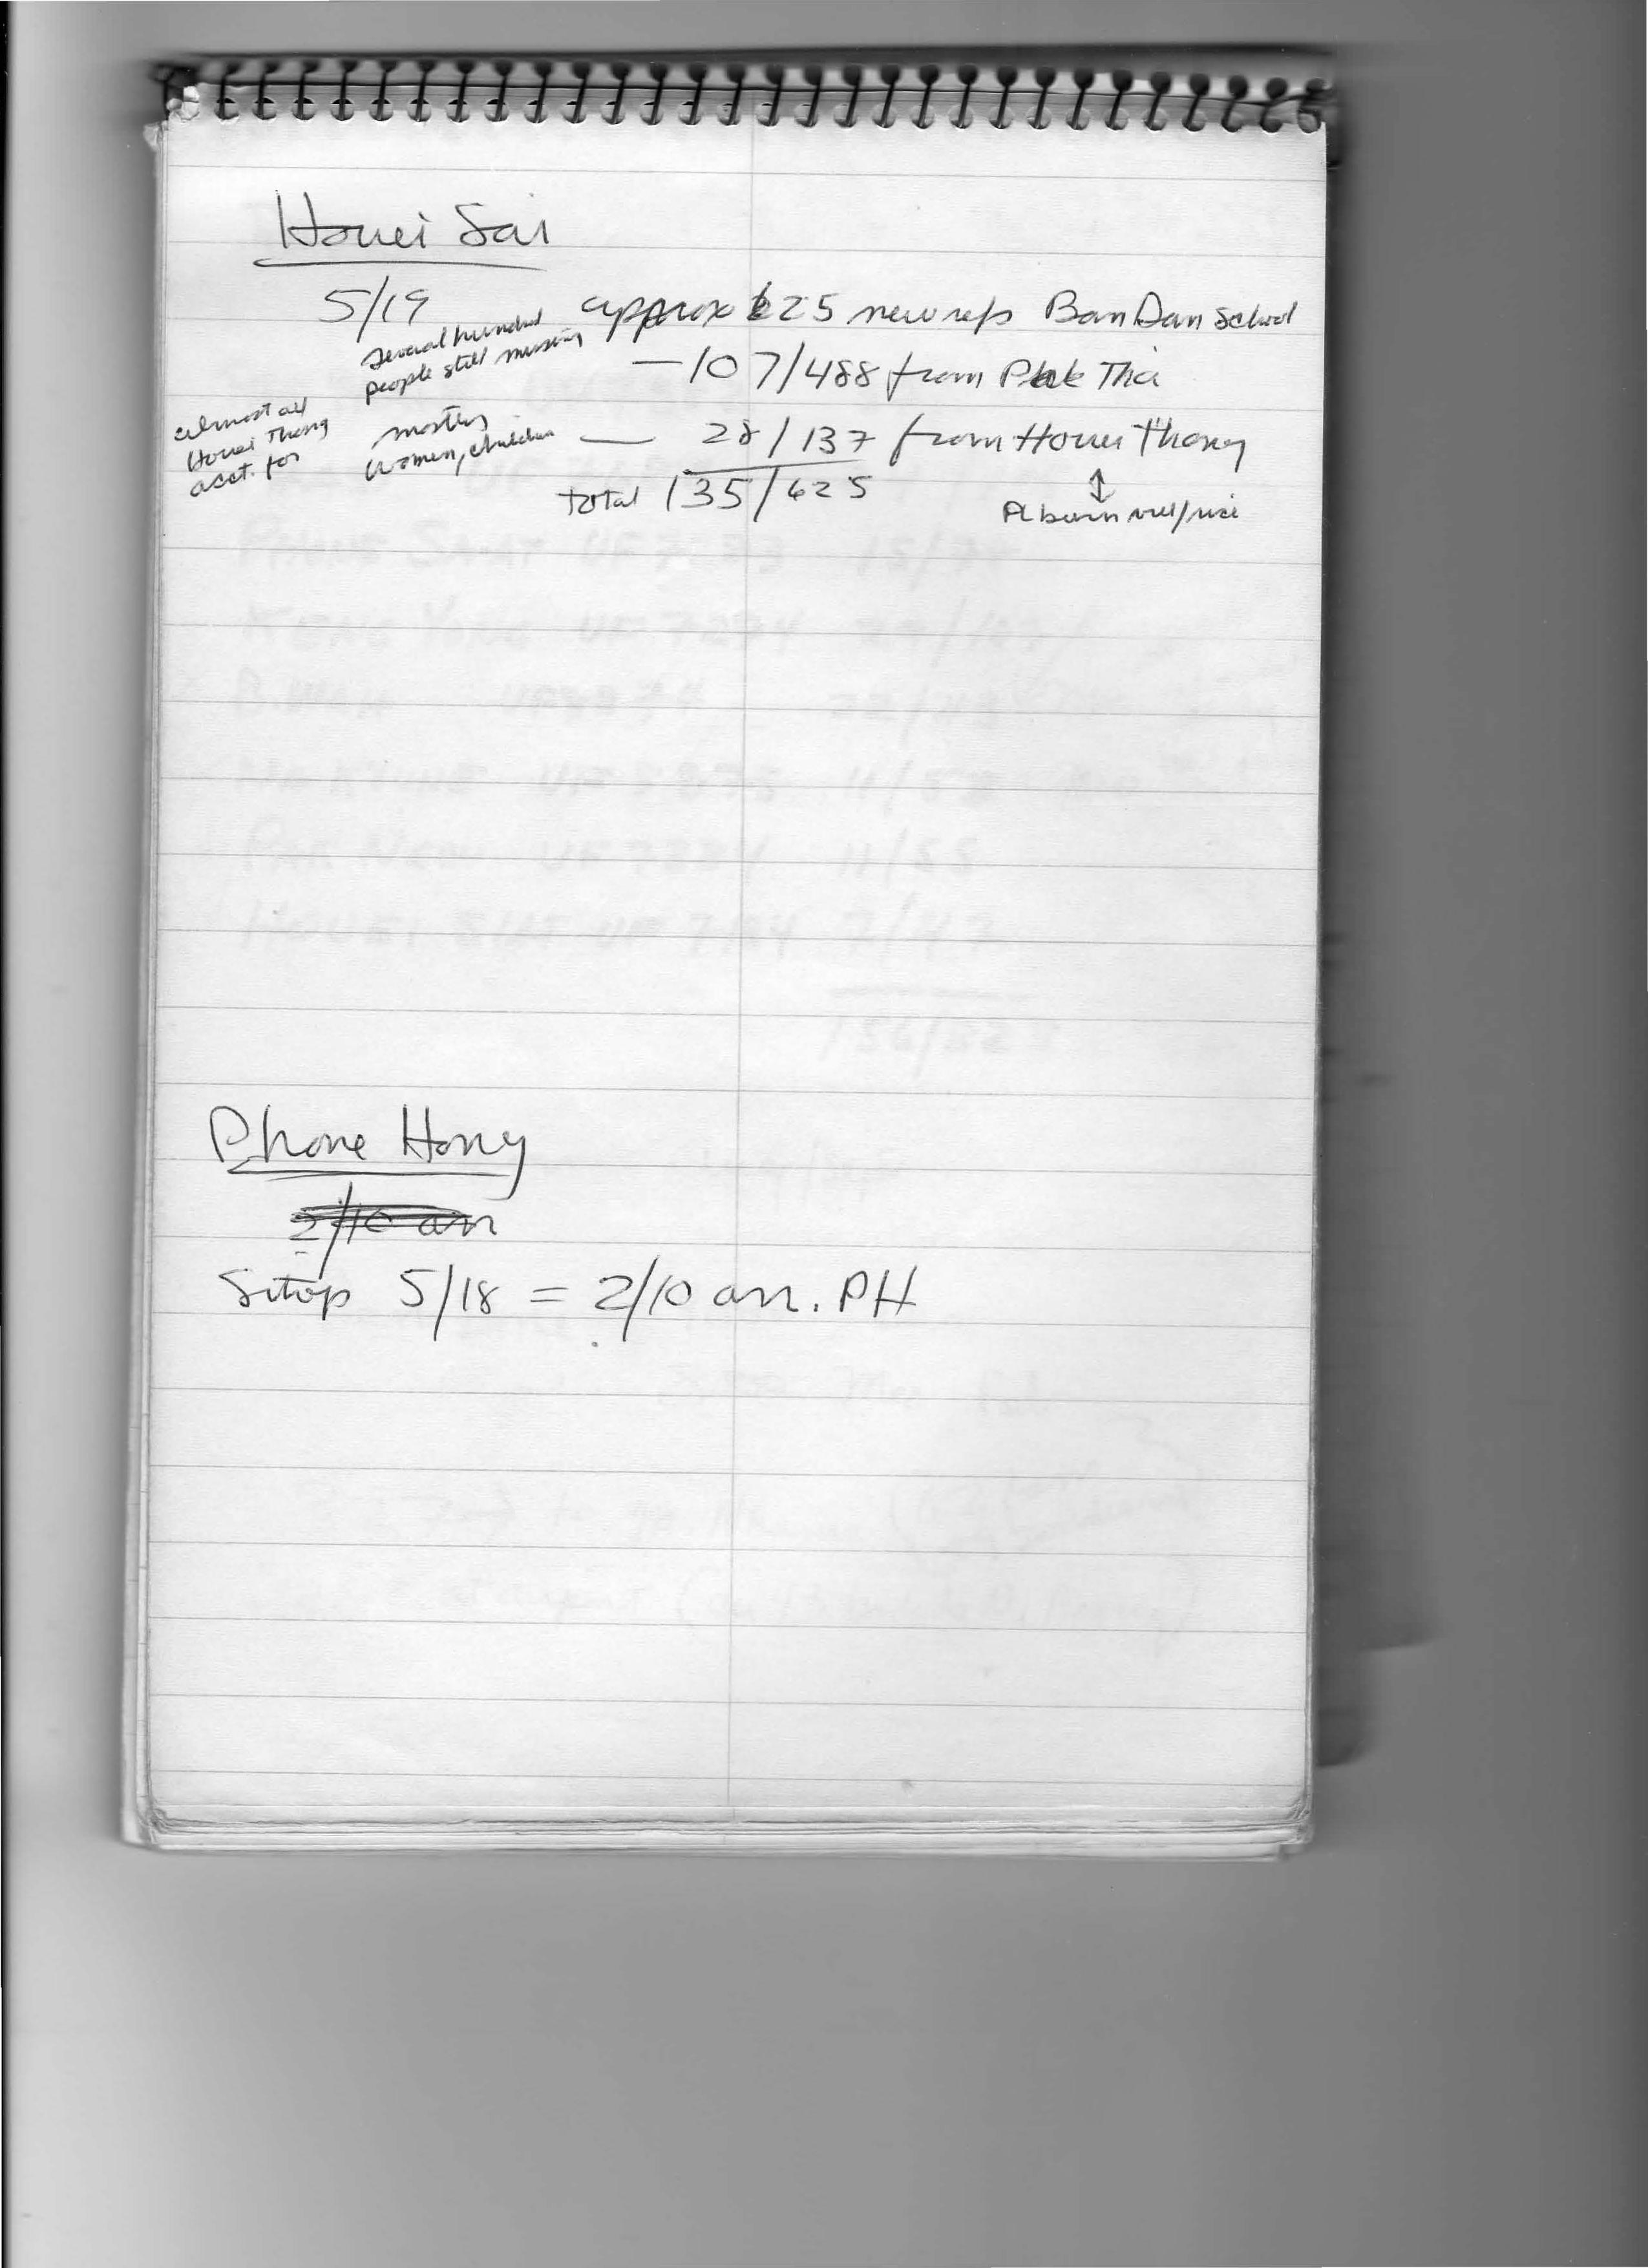 Houei Sai
5/19 approx 625 new refs Ban Dan School
several hundred
people still missing
— 107/488 from Pak Tha
almost all
Houei Thong
acct. for
mostly
women, children
— 28/137 from Houei Thong
total 135/625
↕
PL burn vill/rice
Phone Hong
2/10 arr
Sitop 5/18 = 2/10 arr. PH